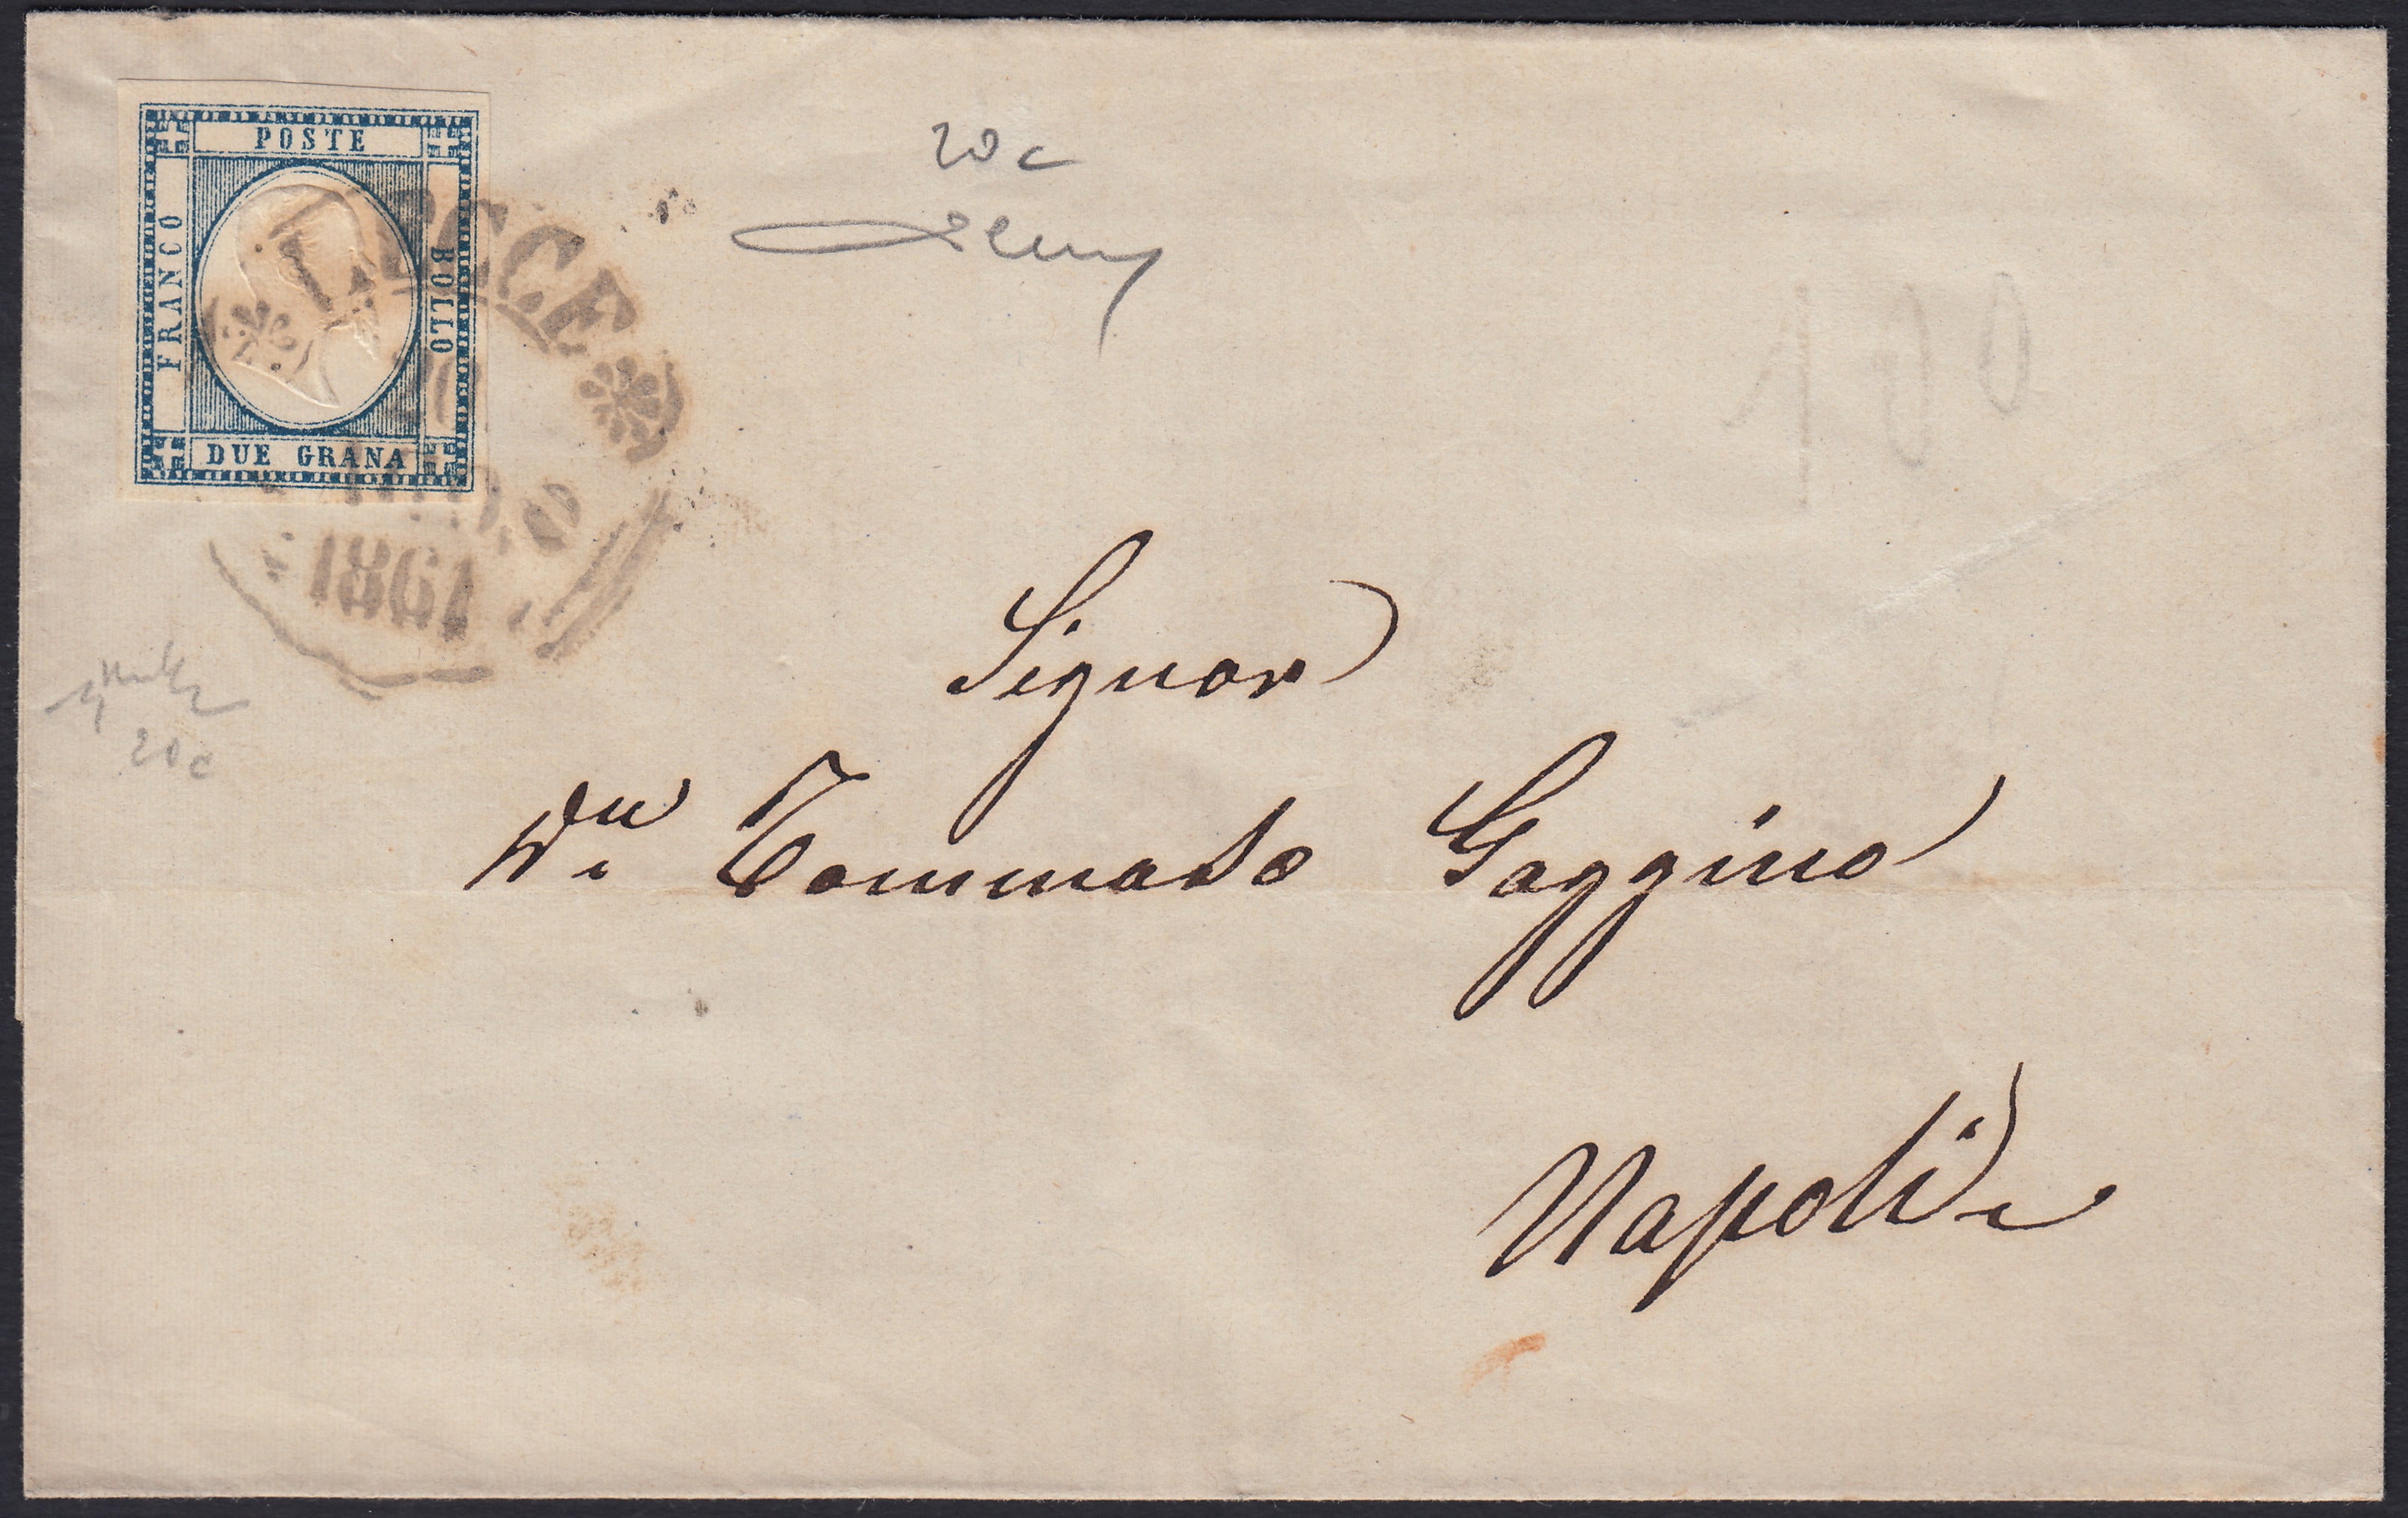 POSTE
FRANCO
BOLLO
DUE GRANA
LECCE
20
1861
20 c
20 c
Signor
Dn Tommaso Gaggino
Napoli